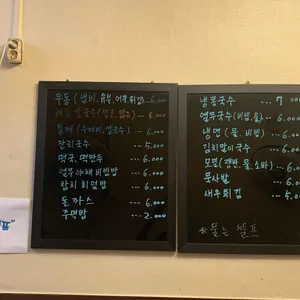 우동 (냄비, 유부, 어묵, 튀김) 6,000
들깨 (수제비, 칼국수) --- 6,000
잔치국수 --- 5,000
떡국, 떡만두 --- 6,000
열무야채 비빔밥 --- 6,000
참치 회덮밥 --- 6,000
돈까스 --- 6,000
주먹밥 --- 2,000
냉콩국수 --- 7
열무국수 (비빔, 물) --- 6,000
냉면 (물, 비빔) --- 6,000
김치말이국수 --- 6,000
모밀 (쟁반, 물, 소바) --- 6,000
콩사탕
새우튀김 --- 5,000
*물은 셀프